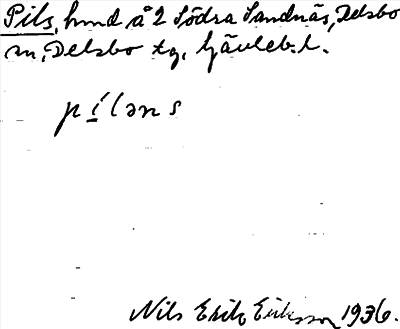 Pils, hmd å 2 Södra Sandnäs, Delsbo
sn, Delsbo tg, Gävleb. l.
pílǝns
Nils Erik Eriksson 1936.